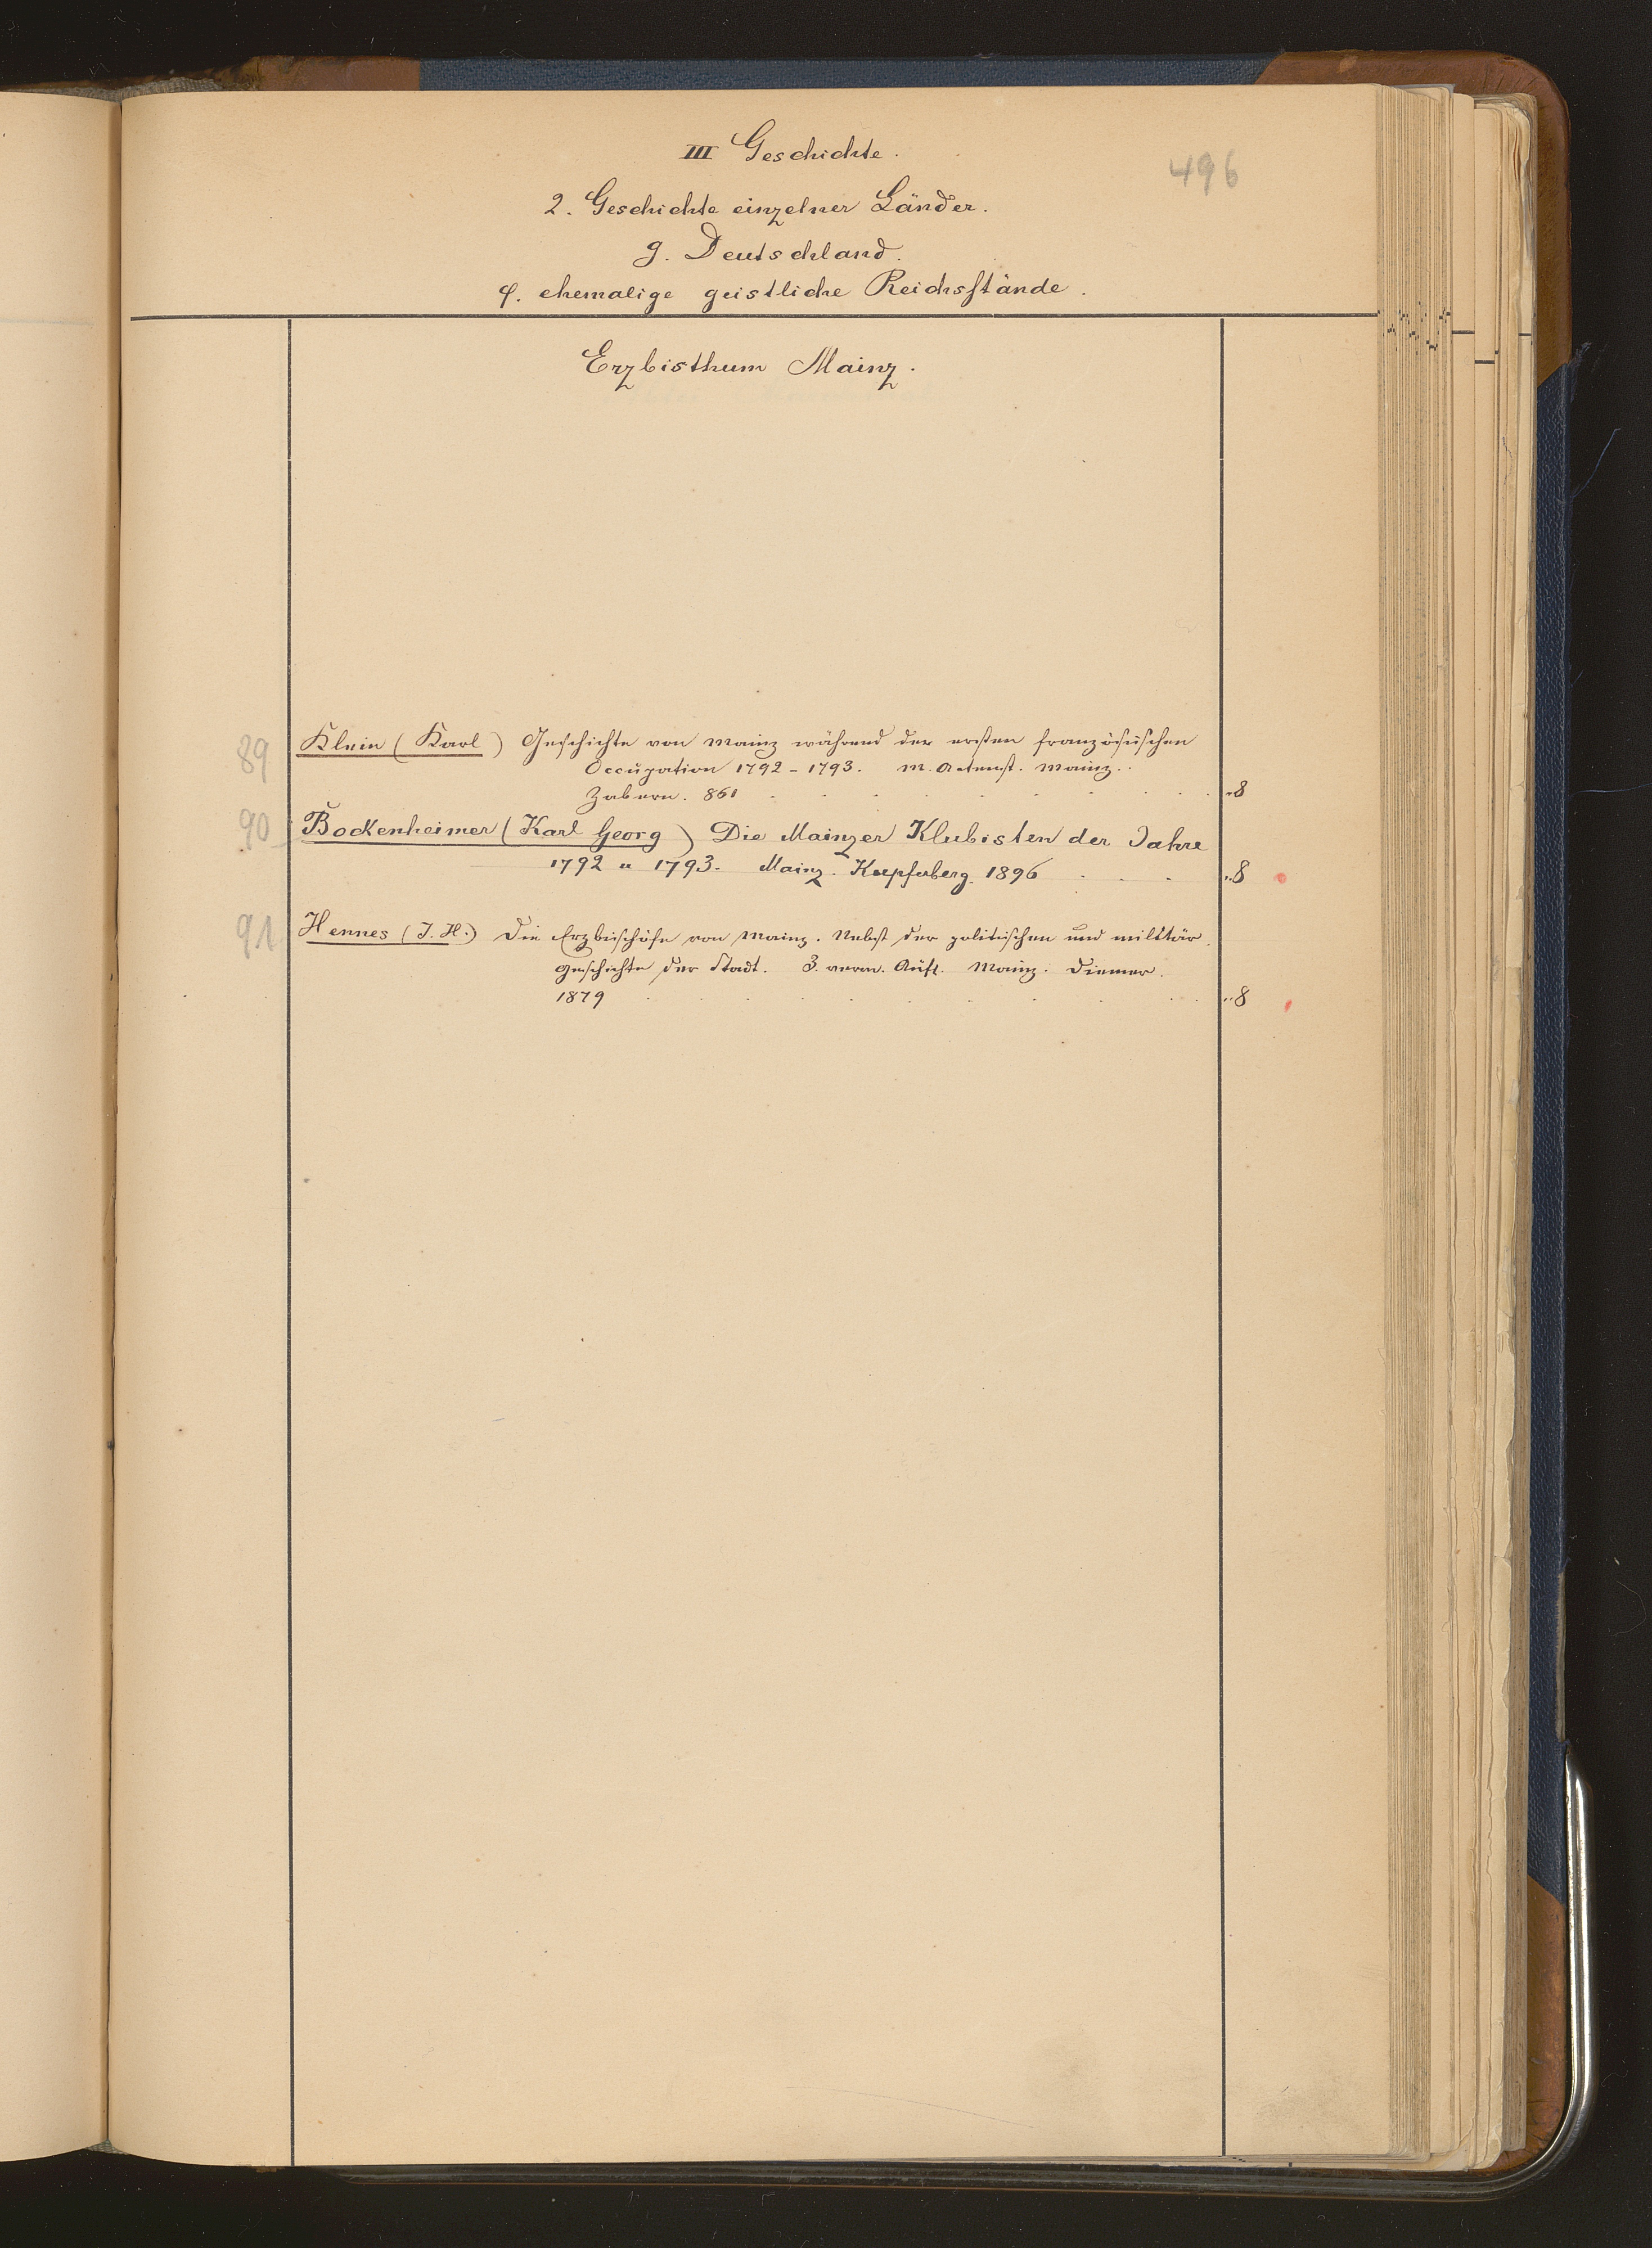 III Geschichte.
496
2. Geschichte einzelner Länder.
g. Deutschland.
φ. ehemalige geistliche Reichsstände.
Erzbisthum Mainz.
89 Klein (Karl) Geschichte von Mainz während der ersten französischen
Occupation 1792-1793. M. Actenst. Mainz.
Zabern. 861 . . . . . . . . . "8
90 Bockenheimer (Karl Georg) Die Mainzer Klubisten der Jahre
1792 u 1793. Mainz. Kupferberg. 1896 . . . "8
91 Hennes (J. H.) Die Erzbischöfe von Mainz. Nebst der politischen und militär.
Geschichte der Stadt. 3. verm. Aufl. Mainz. Diemer.
1879 . . . . . . . . . "8